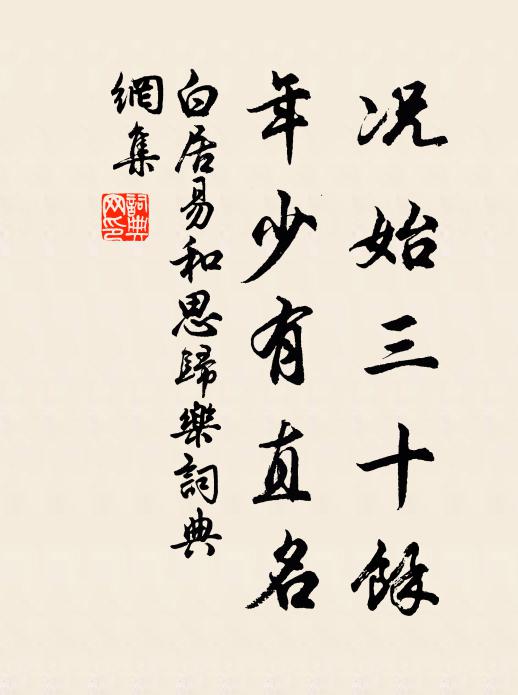 况始三十餘
年少有直名
白居易和思歸樂詞典
網集
詞典网印